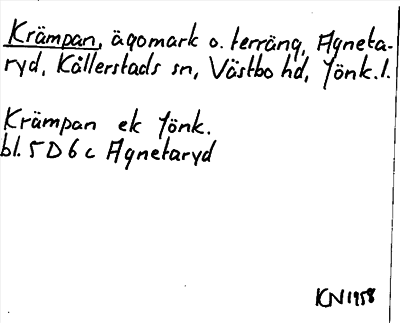 Krämpan, ägomark o. terräng, Agneta-
ryd, Kållerstads sn, Västbo hd, Jönk. l.
Krämpan ek Jönk.
bl. 5 D 6 c Agnetaryd
KN 1958